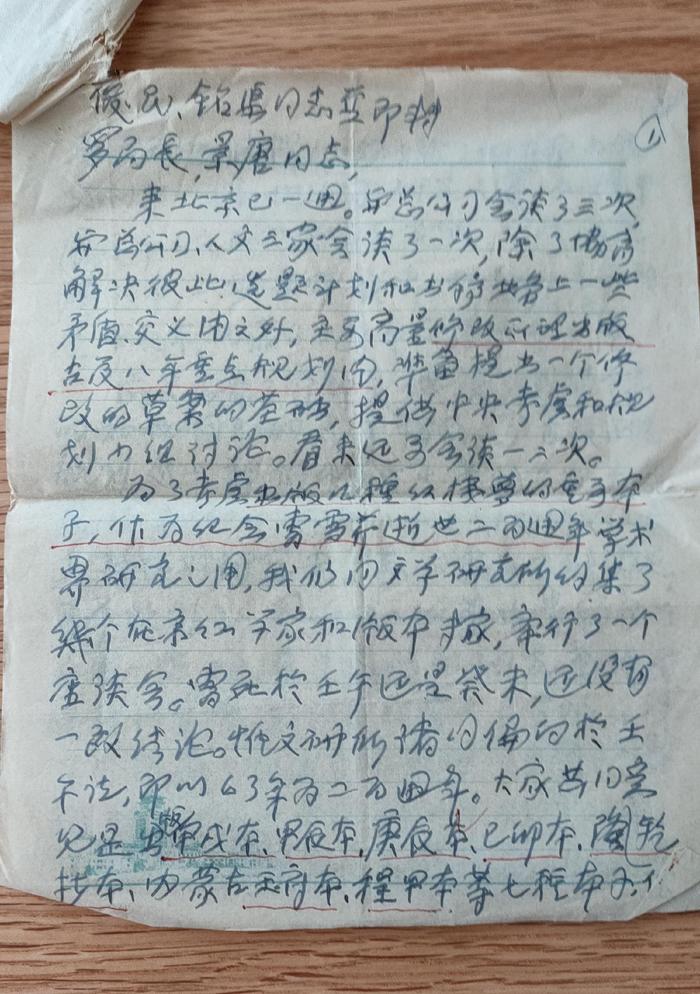 俊民、铭渠同志并即转
罗局长,景唐同志,
①
来北京已一週。与总公司会谈了三次,
与总公司、人文三家会谈了一次,除了协商
解决彼此选题计划和出版业务上一些
矛盾、交叉情况外,主要商量修改所谓出版
古及八年重点规划的,准备提出一个修
改的草案的基础,提供中央考虑和规
划小组讨论。看来还要会谈一二次。
为了考虑出版几种红楼梦的重要本
子,作为纪念曹雪芹逝世二百週年学术
界研究之用,我们同文学研究所约集了
几个在京红学家和版本专家,举行了一个
座谈会。曹死於壬午还是癸未,还没有
一致结论。惟文研所诸同偏向於壬
午说,即以63年为二百週年。大家共同意
见是出甲戌本、甲辰本、庚辰本、己卯本、陶
本、内蒙古王府本、程甲本等七种本子,